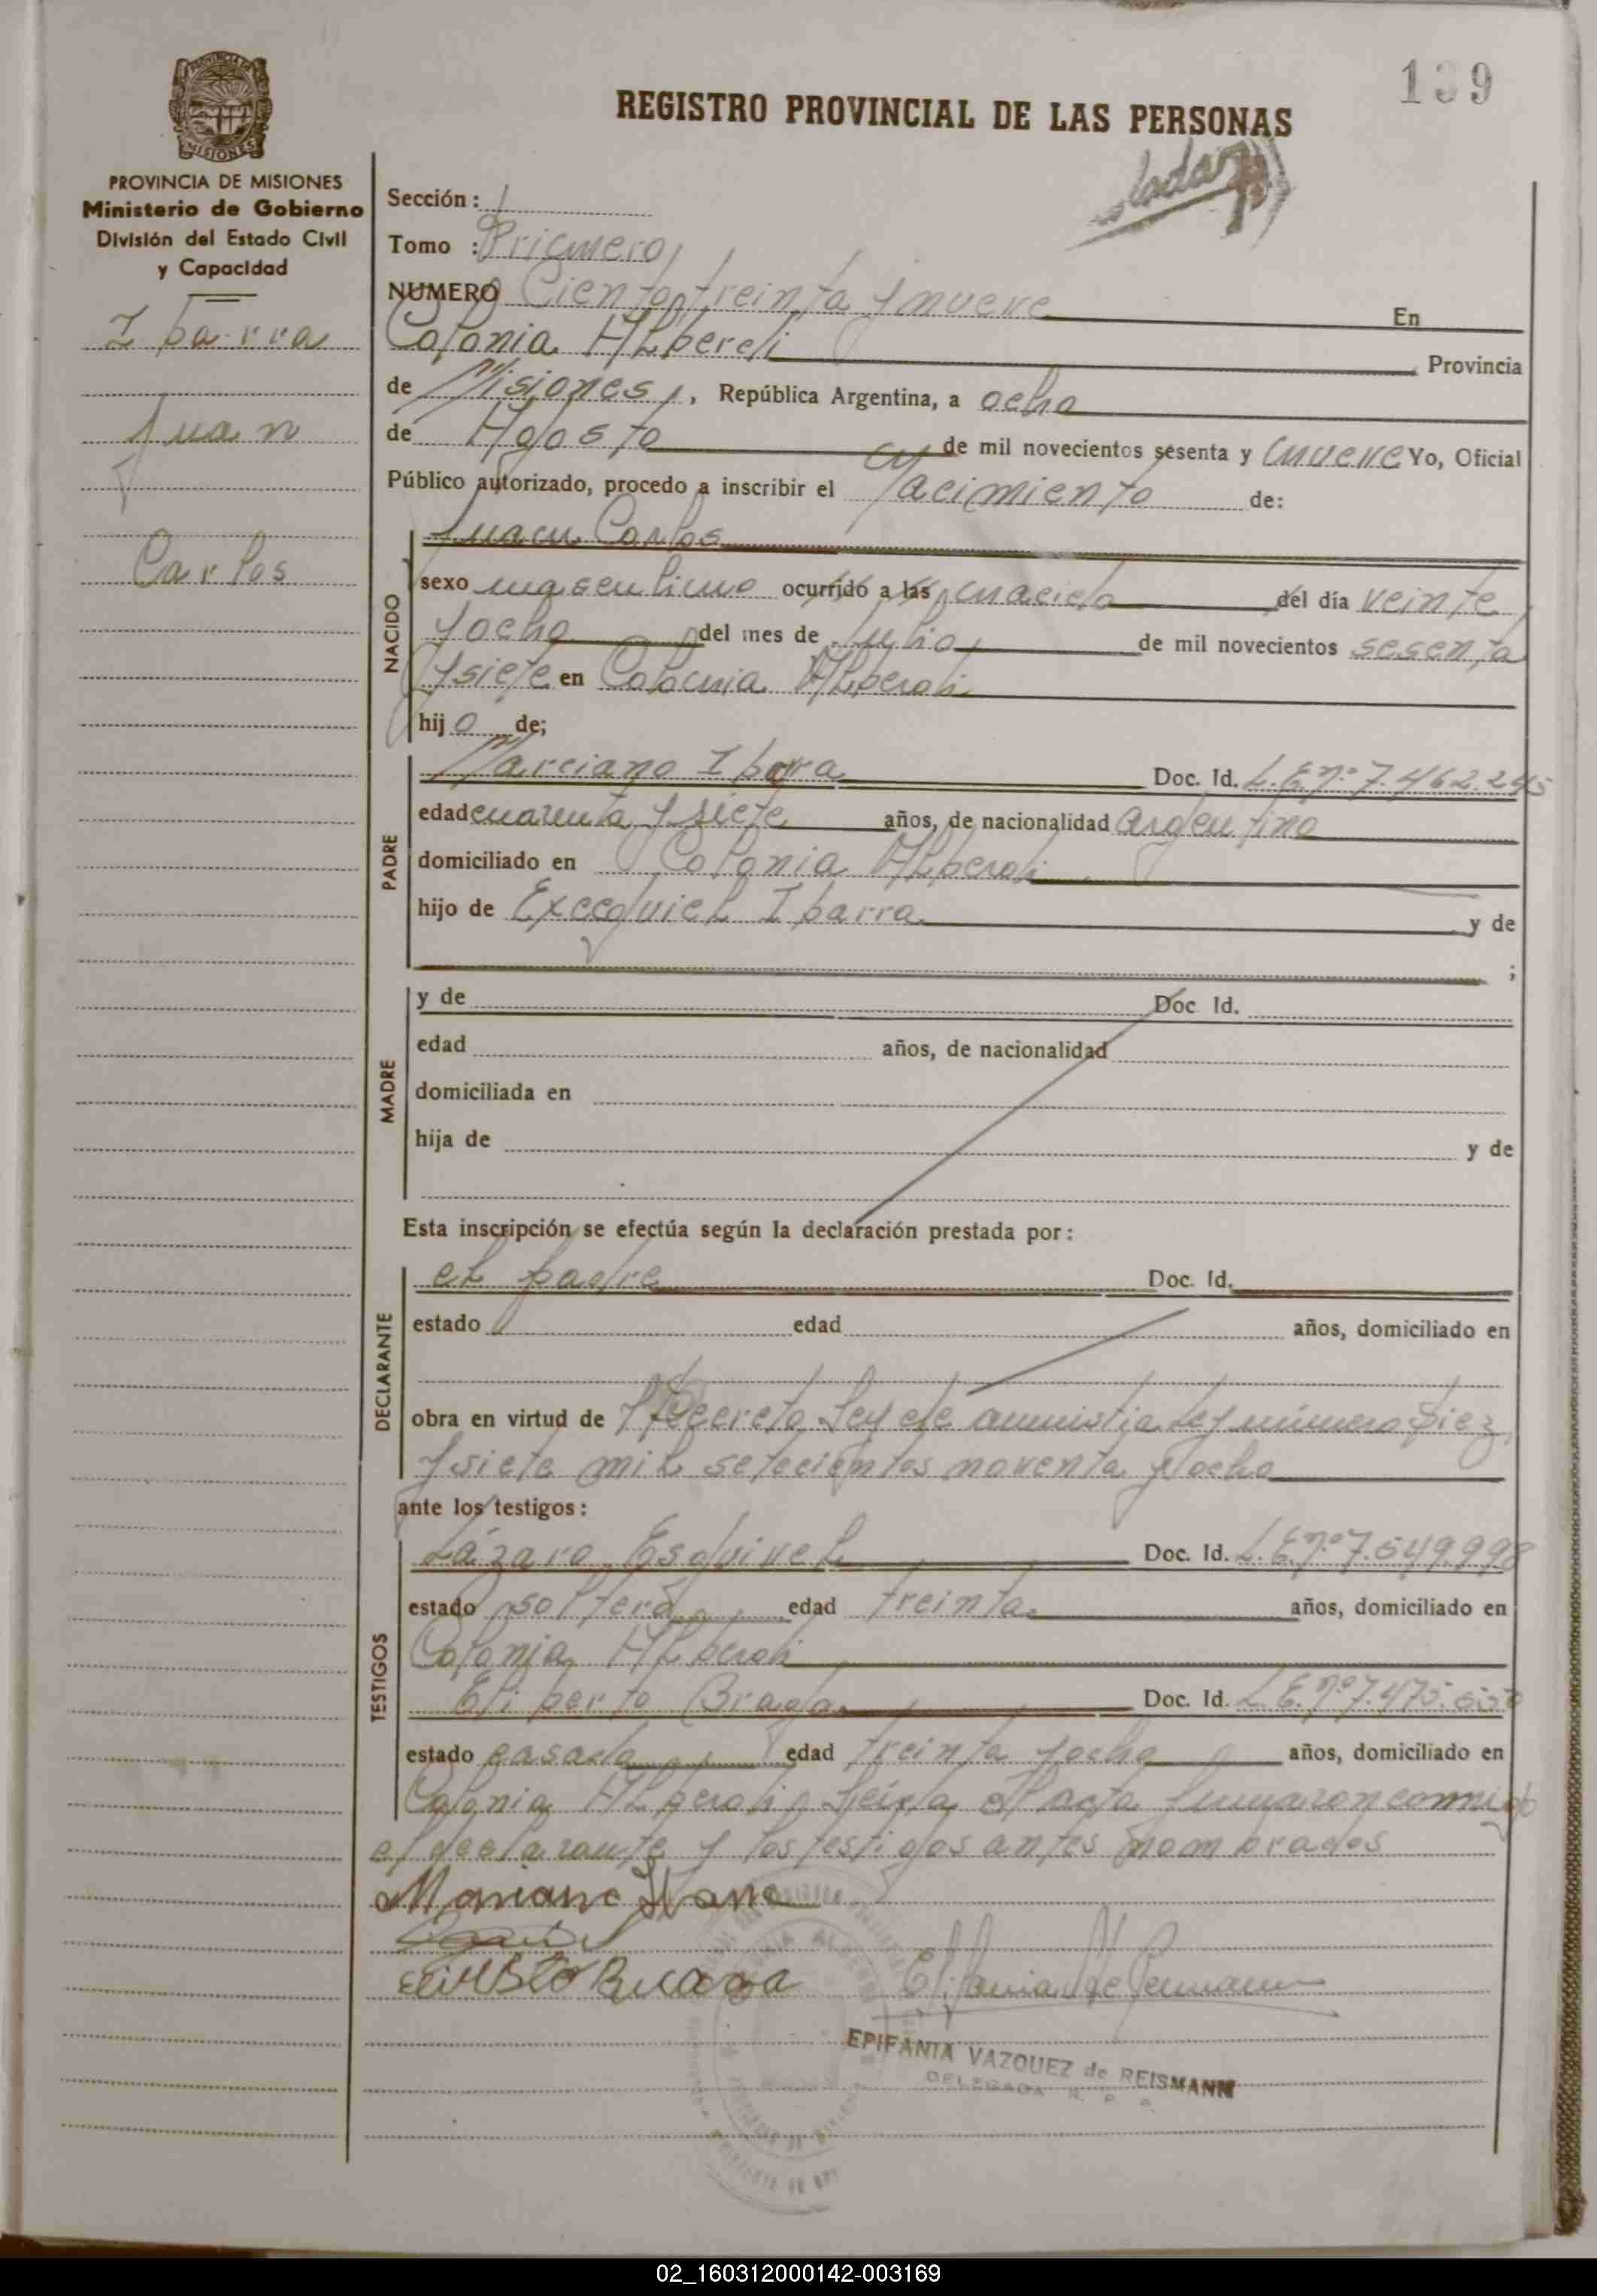 139
REGISTRO PROVINCIAL DE LAS PERSONAS
PROVINCIA DE MISIONES
Ministerio de Gobierno
División del Estado Civil
y Capacidad
Ibarra
Juan
Carlos
Sección: 1
Tomo : Primero
NUMERO Ciento treinta y nueve En
Colonia Alberdi Provincia
de Misiones, República Argentina, a ocho
de Agosto de mil novecientos sesenta y nueve Yo, Oficial
Público autorizado, procedo a inscribir el Nacimiento de:
NACIDO
Juan Carlos
sexo masculino ocurrido a las nacido del día veinte
y ocho del mes de Julio de mil novecientos sesenta
y siete en Colonia Alberdi
hijo de;
PADRE
Marciano Ibarra Doc. Id. L.E.nº 7.462.245
edad cuarenta y siete años, de nacionalidad argentino
domiciliado en Colonia Alberdi
hijo de Execquiel Ibarra y de
;
MADRE
y de Doc Id.
edad años, de nacionalidad
domiciliada en
hija de y de
Esta inscripción se efectúa según la declaración prestada por:
DECLARANTE
el padre Doc. Id.
estado edad años, domiciliado en
obra en virtud de Decreto Ley de amnistia Ley número diez
y siete mil setecientos noventa y ocho
ante los testigos:
TESTIGOS
Lázaro Esquivel Doc. Id. L.E.nº 7.549.998
estado soltero edad treinta años, domiciliado en
Colonia Alberdi
Eliberto Braga Doc. Id. L.E.nº 7.475.
estado casado edad treinta y ocho años, domiciliado en
Colonia Alberdi, Leída el acta firmaron conmigo
el declarante y los testigos antes nombrados
EPIFANIA VAZQUEZ de REISMANN
DELEGADA R. P. P.
02_160312000142-003169